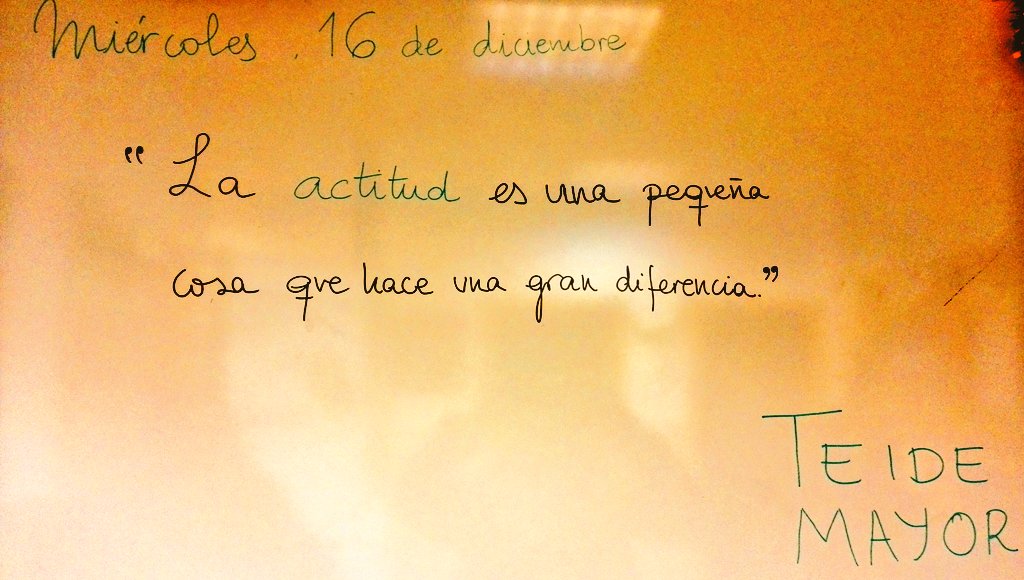 Miércoles. 16 de diciembre
“La actitud es una pequeña
cosa que hace una gran diferencia.”
TEIDE
MAYOR